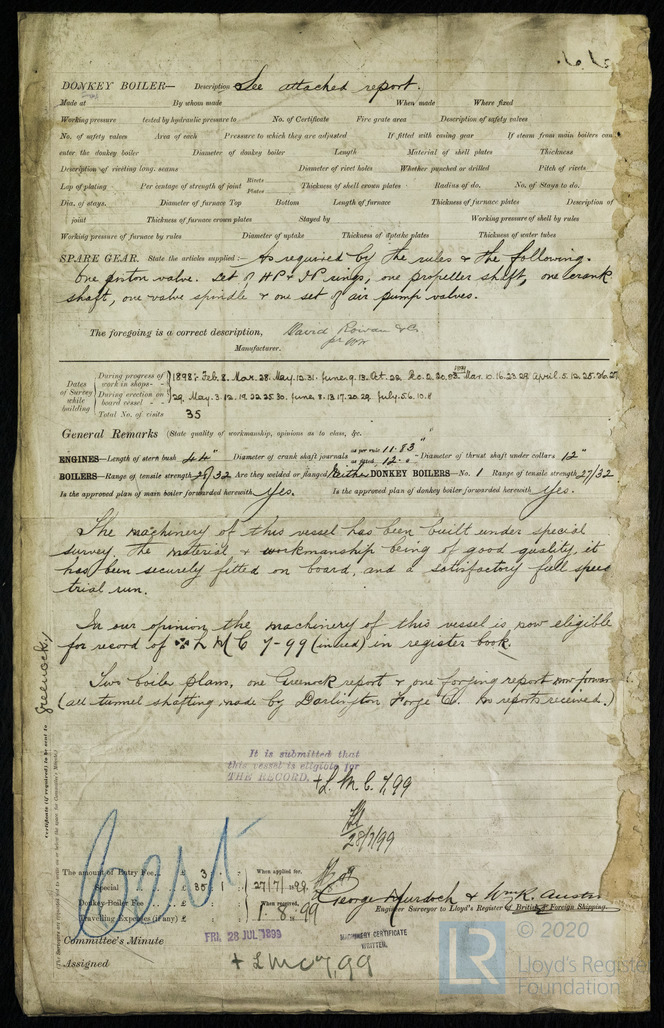 DONKEY BOILER— Description See attached report.
Made at By whom made When made Where fixed
Working pressure tested by hydraulic pressure to No. of Certificate Fire grate area Description of safety valves
No. of safety valves Area of each Pressure to which they are adjusted If fitted with easing gear If steam from main boilers can
enter the donkey boiler Diameter of donkey boiler Length Material of shell plates Thickness
Description of riveting long. seams Diameter of rivet holes Whether punched or drilled Pitch of rivets
Lap of plating Per centage of strength of joint Rivets Plates Thickness of shell crown plates Radius of do. No. of Stays to do.
Dia. of stays. Diameter of furnace Top Bottom Length of furnace Thickness of furnace plates Description of
joint Thickness of furnace crown plates Stayed by Working pressure of shell by rules
Working pressure of furnace by rules Diameter of uptake Thickness of uptake plates Thickness of water tubes
SPARE GEAR. State the articles supplied:— As required by the rules & the following.
One piston valve. Set of HP & IP rings, one propeller shaft, one crank
shaft, one valve spindle & one set of air pump valves.
The foregoing is a correct description,
David Rowan & Co
Manufacturer.
Dates of Survey while building
During progress of work in shops - - 1898: Feb. 8. Mar. 28. May. 12. 31. June. 9. 13. Oct. 22. Dec. 2. 20. Mar. 10. 16. 23. 29. April. 5. 12. 25. 26. 27
During erection on board vessel - - - 29. May. 3. 12. 19. 22. 25. 30. June. 8. 13. 17. 20. 29. July. 5. 6. 10. 8
Total No. of visits 35
General Remarks (State quality of workmanship, opinions as to class, &c.
ENGINES—Length of stern bush 44" Diameter of crank shaft journals as per rule 11.83" as fitted 12" Diameter of thrust shaft under collars 12"
BOILERS—Range of tensile strength 28/32 Are they welded or flanged Neither DONKEY BOILERS—No. 1 Range of tensile strength 27/32
Is the approved plan of main boiler forwarded herewith Yes. Is the approved plan of donkey boiler forwarded herewith Yes.
The machinery of this vessel has been built under special
survey. The material & workmanship being of good quality, it
has been securely fitted on board, and a satisfactory full speed
trial run.
In our opinion the machinery of this vessel is now eligible
for record of ✠ L M C 7-99 (in red) in register book.
Two boiler plans, one Greenock report & one forging report now forwar
(all tunnel shafting made by Darlington Forge Co. No reports received.)
Greenock.
Certificate (if required) to be sent to
It is submitted that
this vessel is eligible for
THE RECORD. + L. M. C. 7,99
28/7/99
Cert
The amount of Entry Fee.. £ 3 When applied for,
Special £ 35 : 1 27/7/1899
Donkey Boiler Fee £ When received,
Travelling Expenses (if any) £ 1-8-99
George Murdoch & Wm. R. Austin
Engineer Surveyor to Lloyd's Register of British & Foreign Shipping.
Committee's Minute FRI. 28 JUL 1899
MACHINERY CERTIFICATE
WRITTEN.
Assigned + L M C 7,99
© 2020
LR
Lloyd's Register
Foundation